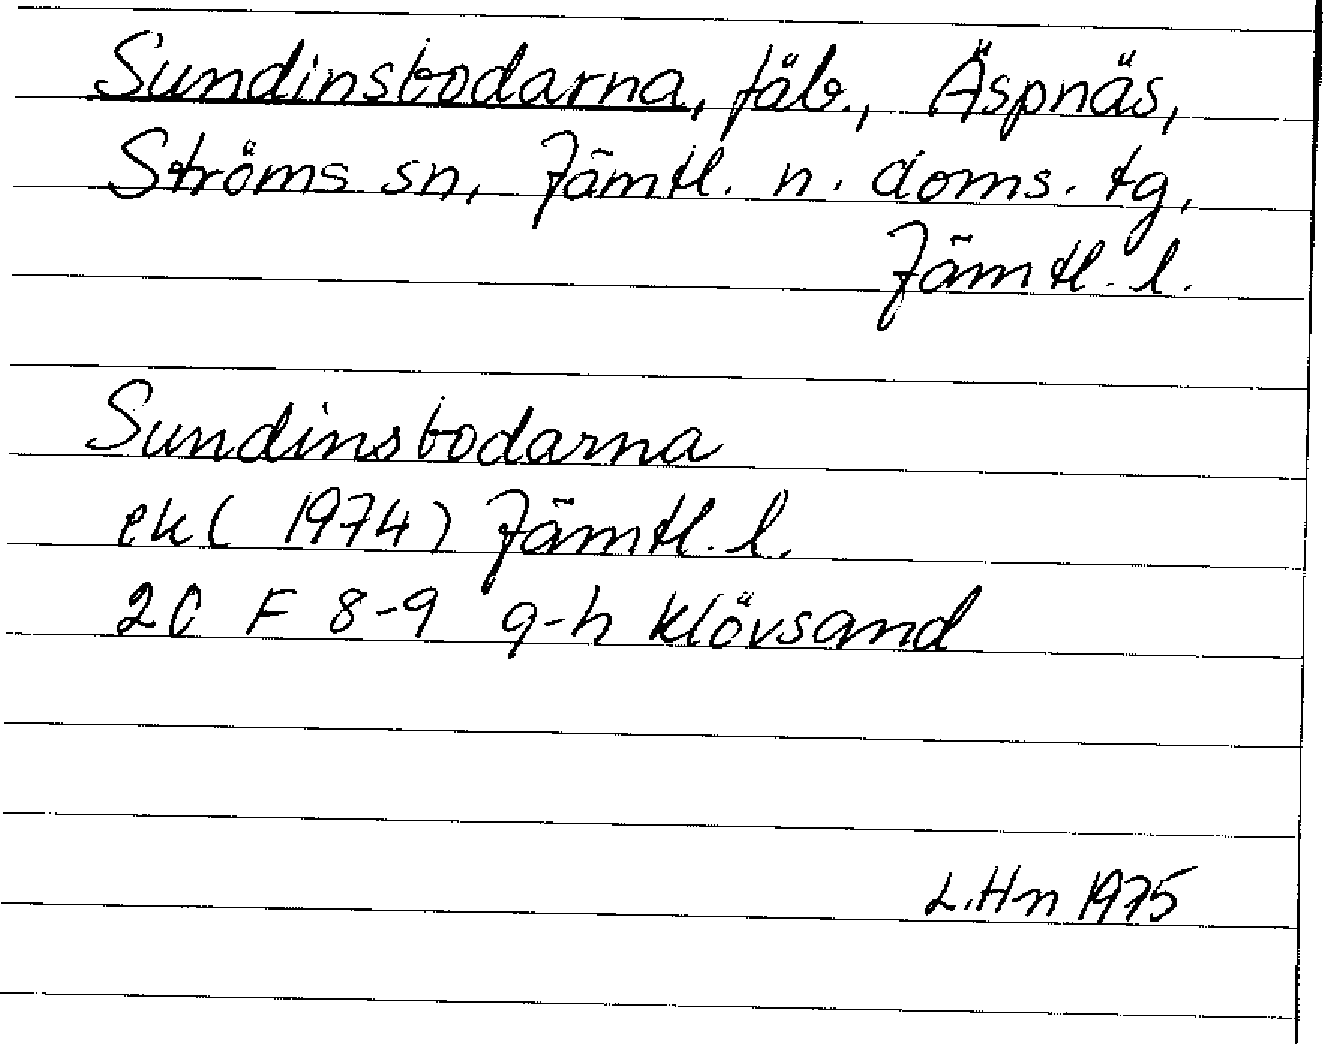 Sundinsbodarna, fäb., Äspnäs,
Ströms sn, Jämtl. n. doms. tg,
Jämtl. l.
Sundinsbodarna
ek (1974) Jämtl. l.
20 F 8-9 g-h Klövsand
L.Hn 1975